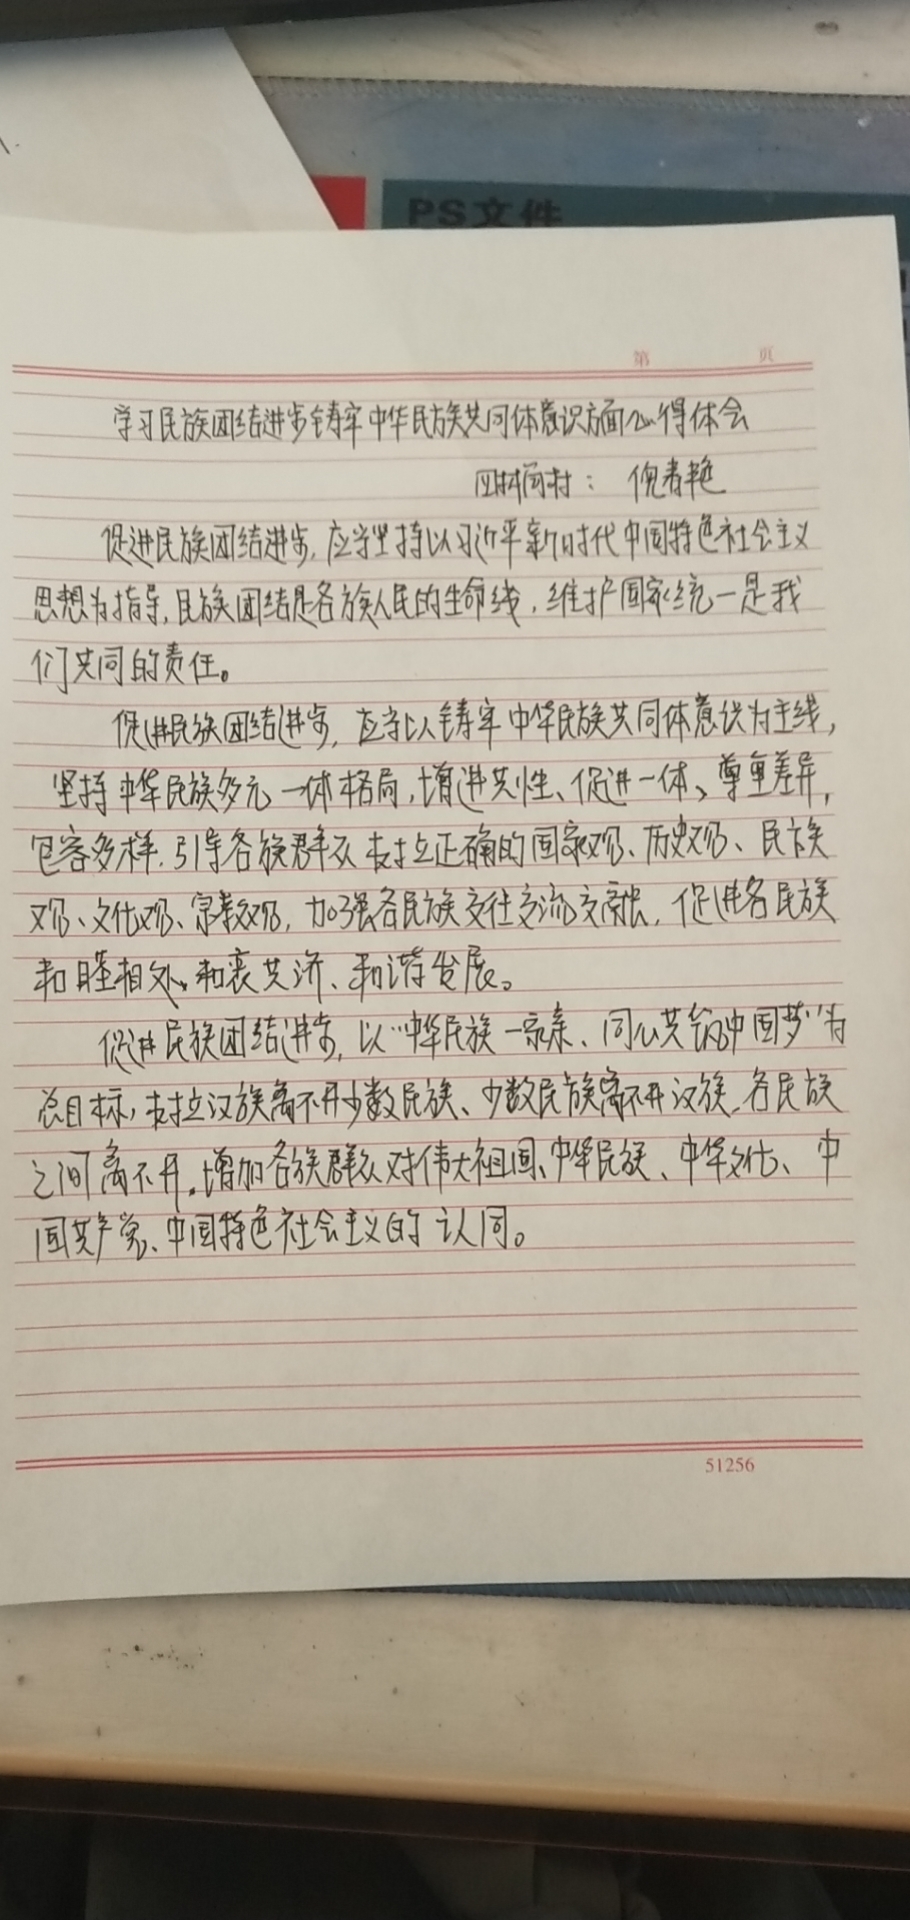 PS文件
第 页
学习民族团结进步铸牢中华民族共同体意识方面心得体会
村：倪青艳
促进民族团结进步,应当坚持以习近平新时代中国特色社会主义
思想为指导,民族团结是各族人民的生命线,维护国家统一是我
们共同的责任。
促进民族团结进步,应当以铸牢中华民族共同体意识为主线,
坚持中华民族多元一体格局,增进共性、促进一体、尊重差异,
包容多样.引导各族群众树立正确的国家观、历史观、民族
观、文化观、宗教观,加强各民族交往交流交融,促进各民族
和睦相处、和衷共济、和谐发展。
促进民族团结进步,以“中华民族一家亲、同心共筑中国梦”为
总目标,树立汉族离不开少数民族、少数民族离不开汉族、各民族
之间离不开,增加各族群众对伟大祖国、中华民族、中华文化、中
国共产党、中国特色社会主义的认同。
51256